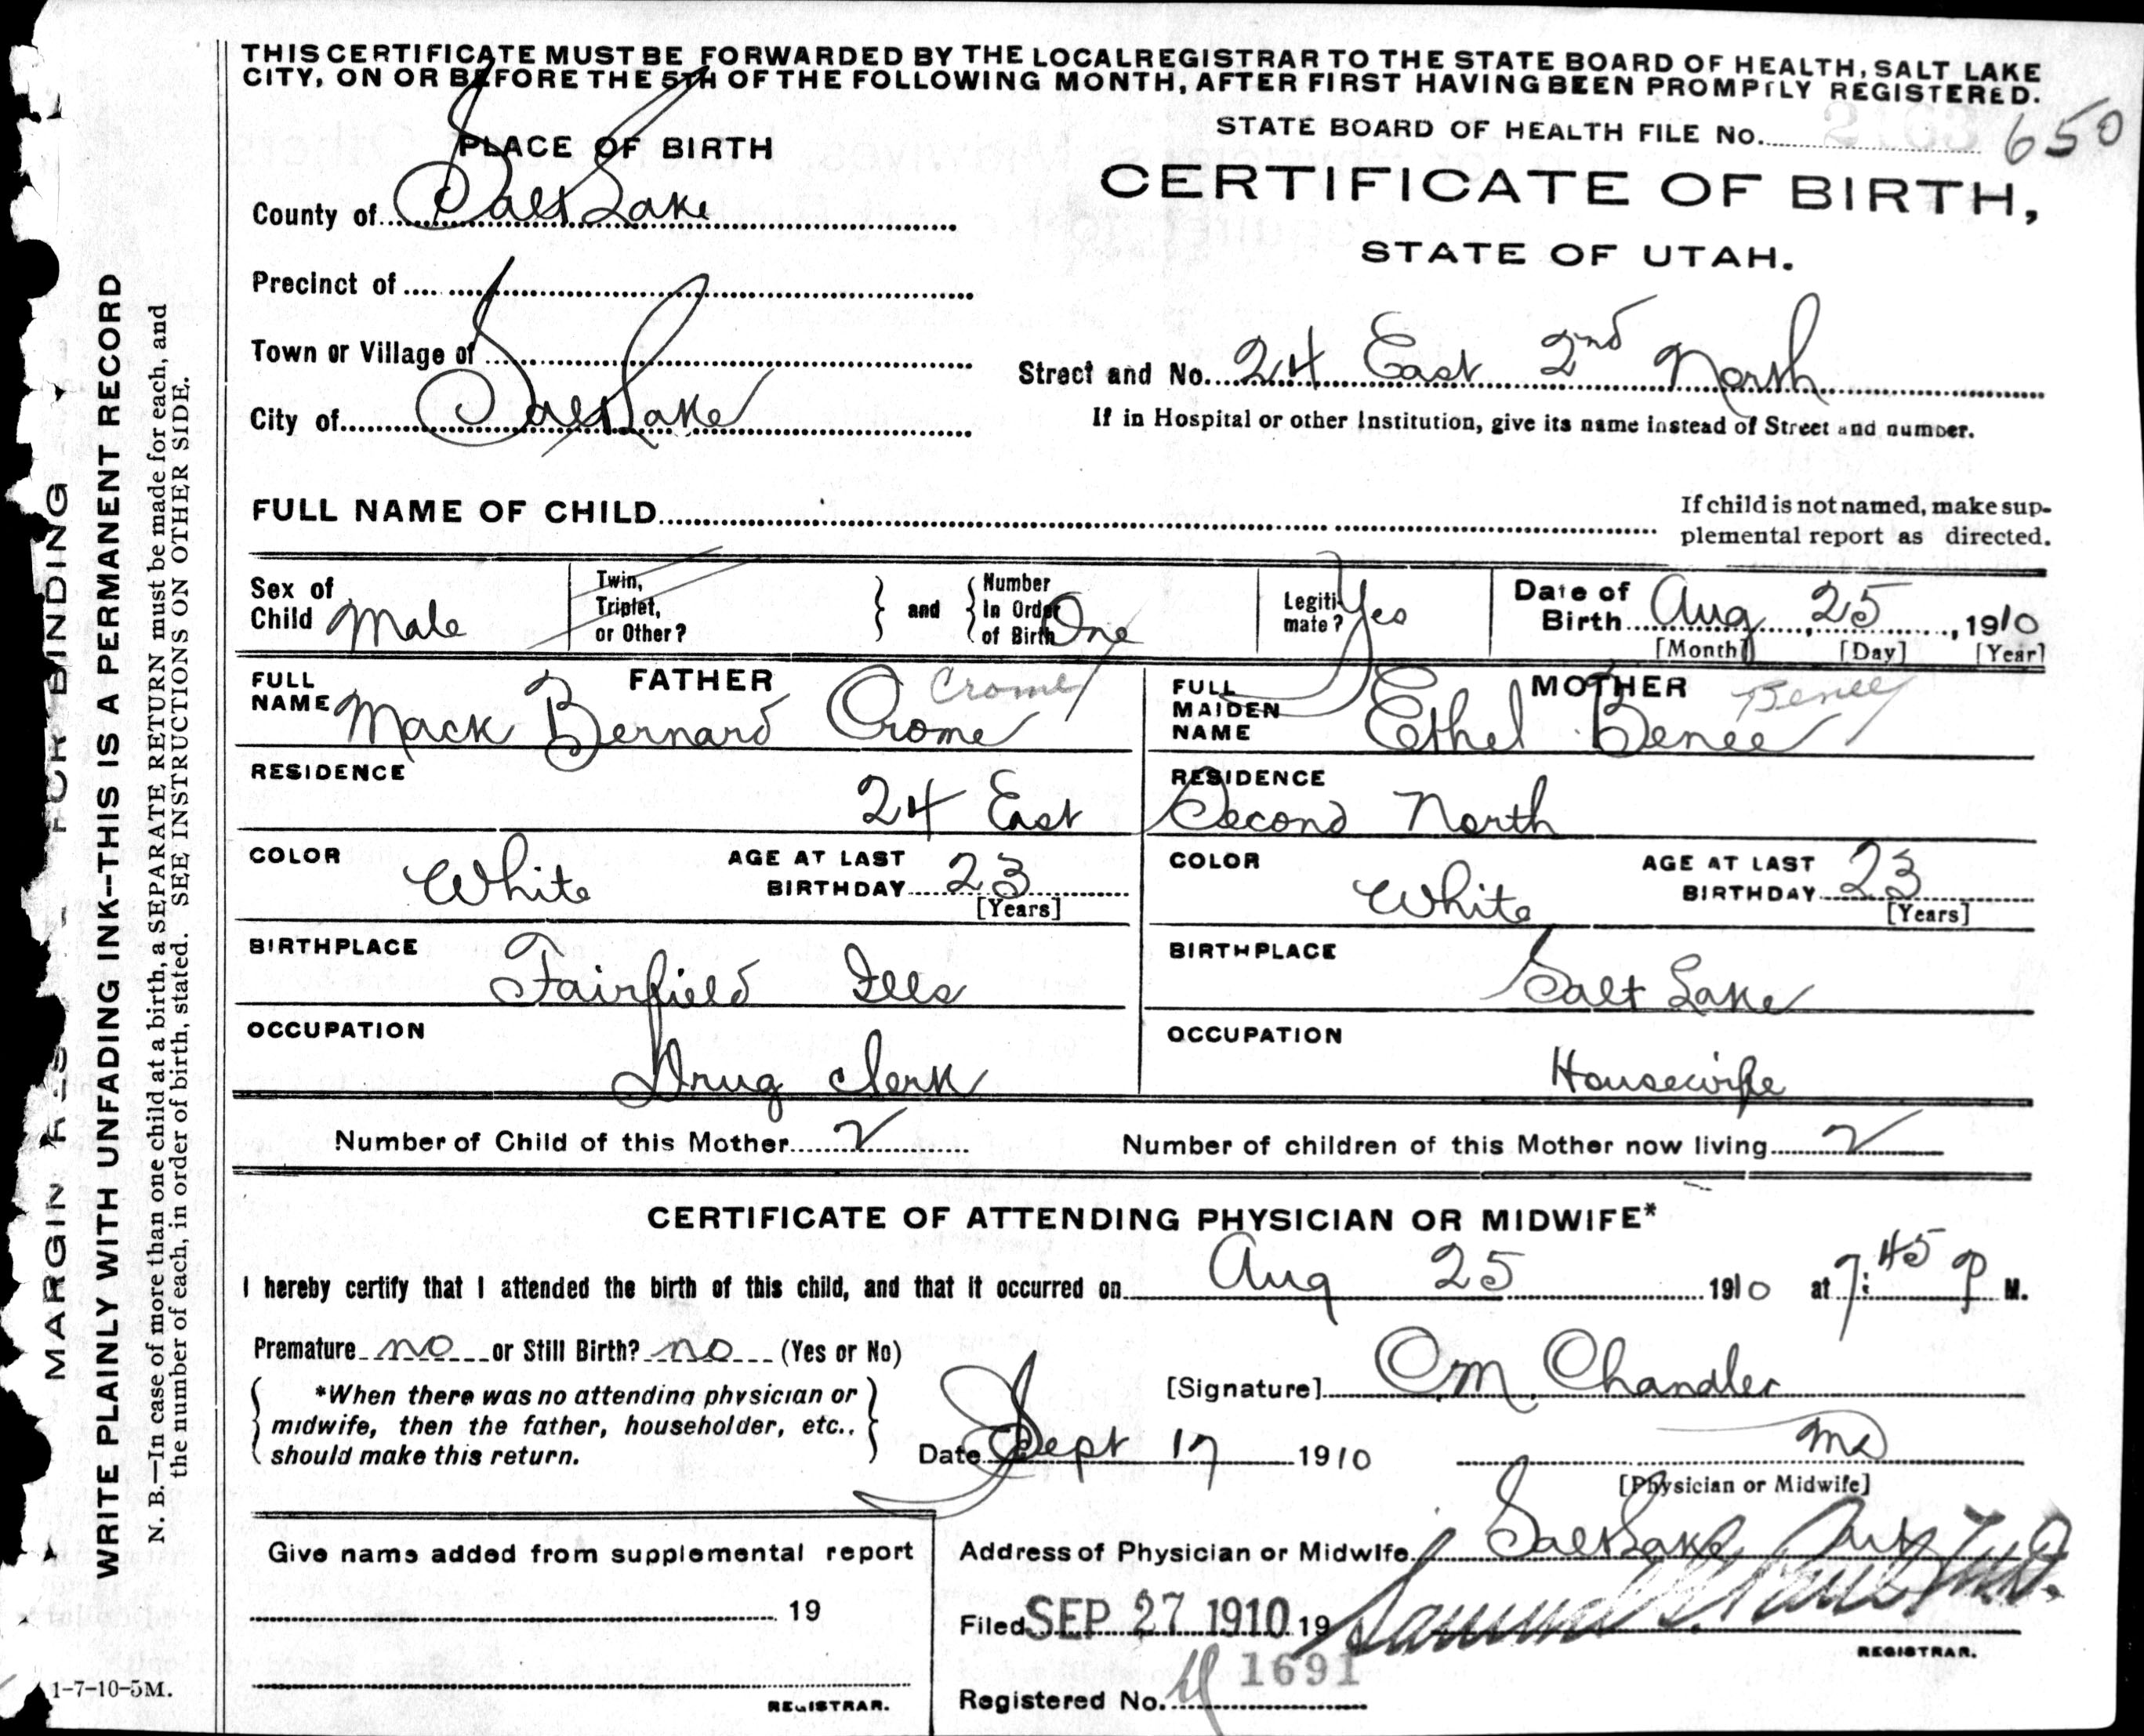 THIS CERTIFICATE MUST BE FORWARDED BY THE LOCALREGISTRAR TO THE STATE BOARD OF HEALTH, SALT LAKE
CITY, ON OR BEFORE THE 5TH OF THE FOLLOWING MONTH, AFTER FIRST HAVING BEEN PROMPTLY REGISTERED.
STATE BOARD OF HEALTH FILE No. 650
PLACE OF BIRTH
CERTIFICATE OF BIRTH,
STATE OF UTAH.
County of Salt Lake
Precinct of
Town or Village of
Street and No. 24 East 2nd North
City of Salt Lake
If in Hospital or other Institution, give its name instead of Street and number.
FULL NAME OF CHILD
If child is not named, make sup-
plemental report as directed.
Sex of Child Male
Twin, Triplet, or Other?
and
Number In Order of Birth One
Legiti-mate? Yes
Date of Birth Aug 25, 1910
[Month] [Day] [Year]
FATHER
FULL NAME Mack Bernard Crome Crome
MOTHER
FULL MAIDEN NAME Ethel Benee Benee
RESIDENCE 24 East
RESIDENCE Second North
COLOR White
AGE AT LAST BIRTHDAY 23 [Years]
COLOR White
AGE AT LAST BIRTHDAY 23 [Years]
BIRTHPLACE Fairfield Ills
BIRTHPLACE Salt Lake
OCCUPATION Drug Clerk
OCCUPATION Housewife
Number of Child of this Mother 2
Number of children of this Mother now living 2
CERTIFICATE OF ATTENDING PHYSICIAN OR MIDWIFE*
I hereby certify that I attended the birth of this child, and that it occurred on Aug 25 1910 at 7:45 P M.
Premature no or Still Birth? no (Yes or No)
*When there was no attending physician or
midwife, then the father, householder, etc.,
should make this return.
[Signature] O.M. Chandler
Date Sept 17 1910
MD
[Physician or Midwife]
Give name added from supplemental report
19
REGISTRAR.
Address of Physician or Midwife Salt Lake
Filed SEP 27 1910 19
REGISTRAR.
Registered No. 1691
MARGIN FOR BINDING
WRITE PLAINLY WITH UNFADING INK--THIS IS A PERMANENT RECORD
N. B.—In case of more than one child at a birth, a SEPARATE RETURN must be made for each, and
the number of each, in order of birth, stated. SEE INSTRUCTIONS ON OTHER SIDE.
1-7-10-5M.